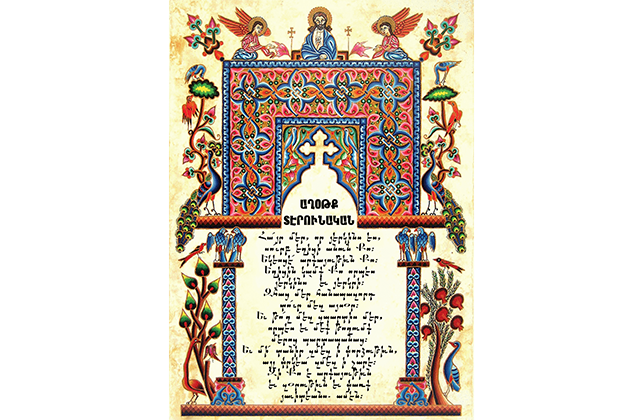 ԱՂՕԹՔ
ՏԷՐՈՒՆԱԿԱՆ
Հայր մեր, որ յերկինս ես,
սուրբ եղիցի անուն Քո:
Եկեսցէ արքայութիւն Քո:
Եղիցին կամք Քո որպէս
յերկինս և յերկրի:
Զհաց մեր հանապազորդ
տուր մեզ այսօր:
Եւ թող մեզ զպարտիս մեր,
որպէս և մեք թողումք
մերոց պարտապանաց:
Եւ մի՛ տանիր զմեզ ի փորձութիւն,
այլ փրկեա զմեզ ի չարէ:
Զի Քո է արքայութիւն
և զօրութիւն և փառք
յաւիտեանս. ամէն: